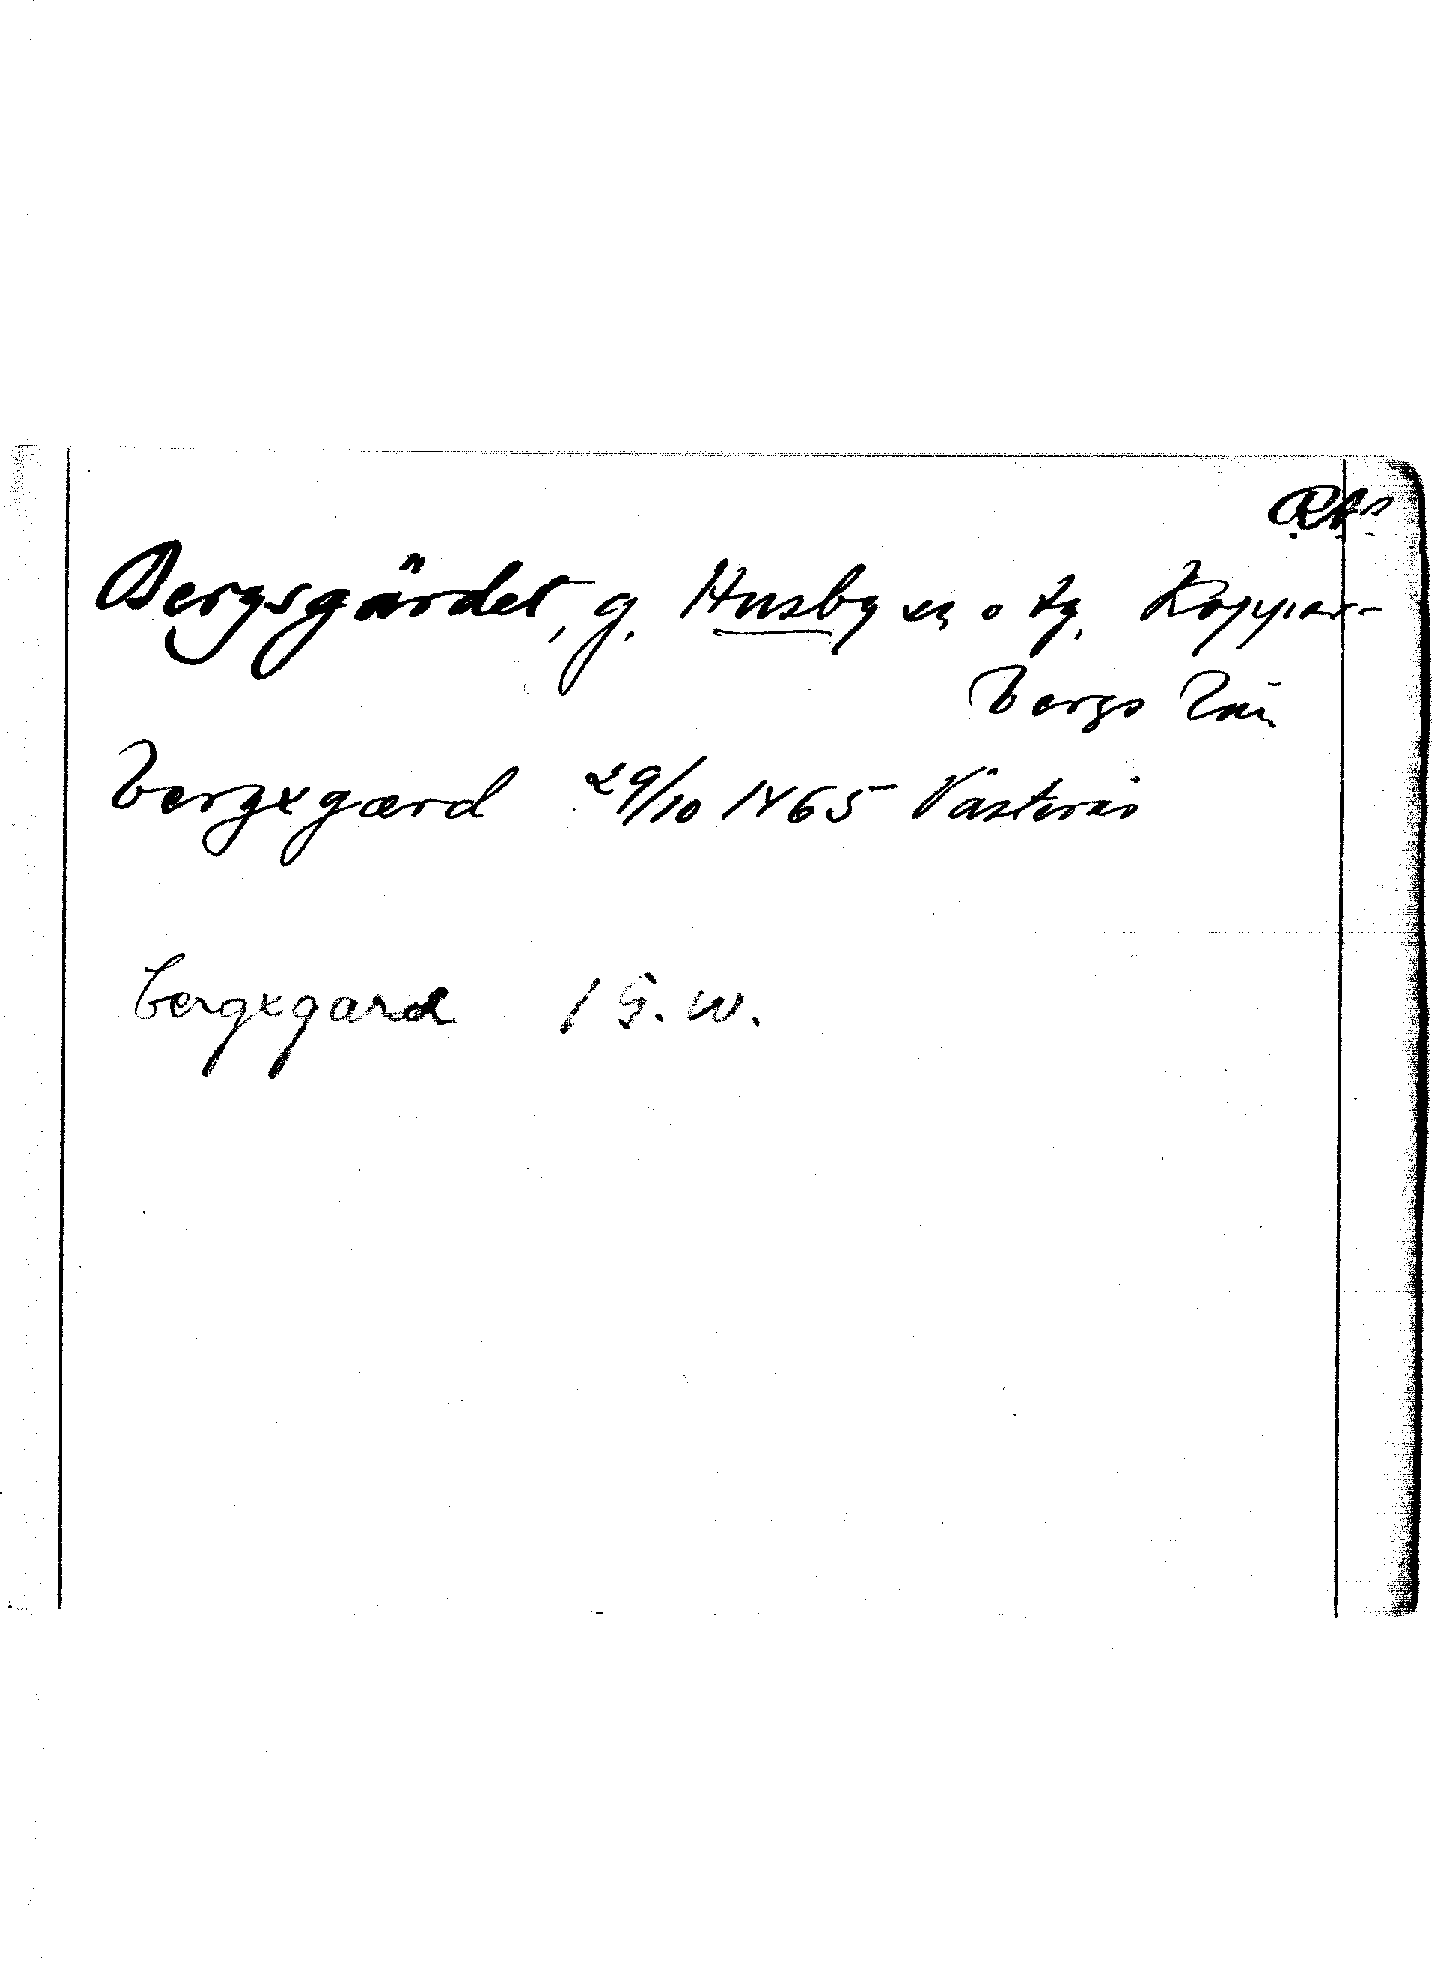 Bergsgärdet, g. Husby sn o tg. Koppar-
bergs län
bergxgærd 29/10 1465 Västerås
bergxgard 1 G. W.